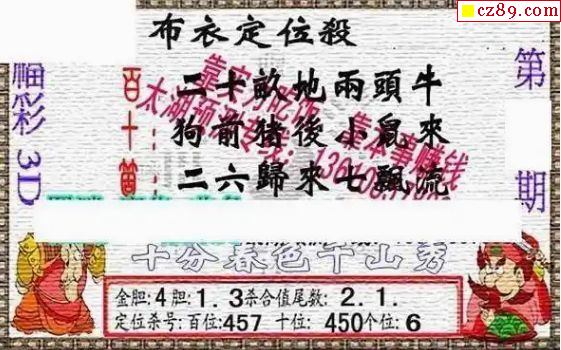 cz89.com
布衣定位殺
福彩3D
第 期
百十個
二十畝地兩頭牛
狗前豬後小鼠來
二六歸來七飄流
十分春色千山秀
金胆:4胆:1.3杀合值尾数:2.1.
定位杀号:百位:457 十位:450个位:6